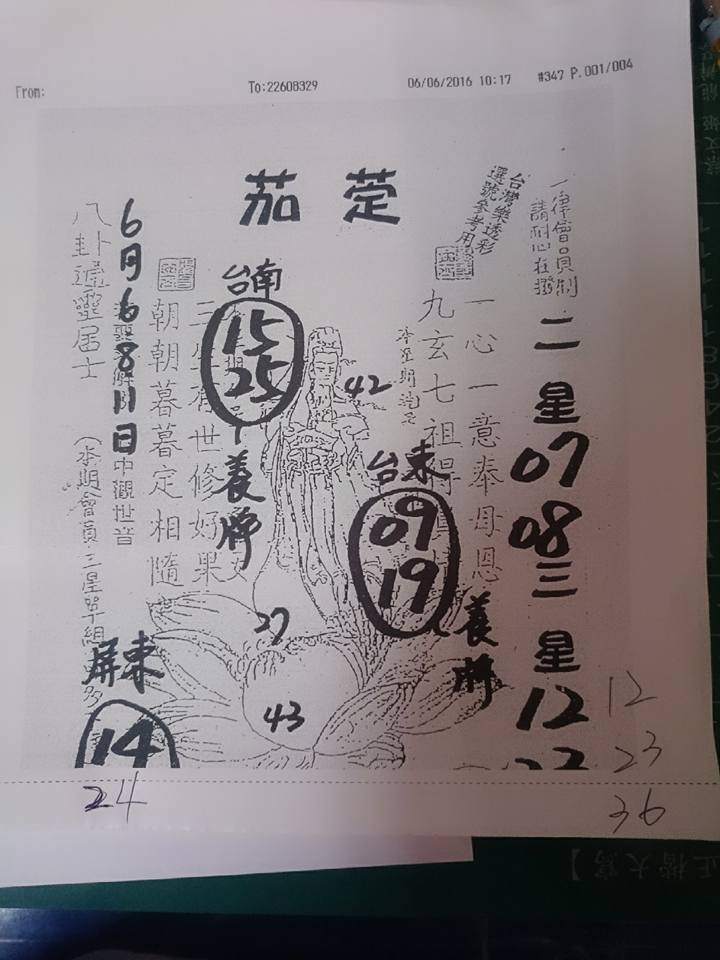 From:
To:22608329
06/06/2016 10:17
#347 P.001/004
茄萣
一律會員制
請耐心在撥
台灣樂透彩
選號參考用
二星
07
08
三星
12
一心一意奉母恩
九玄七祖得
台東
09
19
養牌
42
台南
15
25
養牌
有世修好果
朝朝暮暮定相隨
6月6.8.11日
中觀世音
八卦
居士
(本期會員三星單組
27
43
屏東
14
24
12
23
36
正楷大寫】